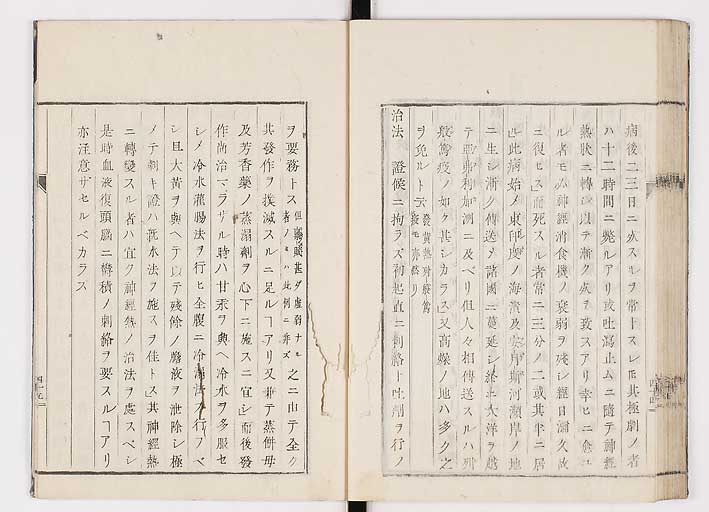 病後二三日ニ死スルヲ常トスレ𪜈其極劇ノ者
ハ十二時間ニ斃ルアリ或吐瀉止ムニ隨テ神經
熱状ニ轉シ以テ漸ク死ヲ致スアリ幸ヒニ愈ユ
ル者モ亦神經消食機ノ衰弱ヲ殘シ經日彌久故
ニ復セス而死スル者常ニ三分ノ二或其半ニ居
此病始メ東印度ノ海濱及安日斯河瀕岸ノ地
ニ生シ漸ク傳送メ諸國ニ蔓延シ終ニ大洋ヲ越
テ亞弗利加洲ニ及ベリ但人々相傳送スルハ
疫ノ如ク甚シカラス又高燥ノ地ハ多ク之
ヲ免ルト云
治法 證候ニ拘ラズ初起直ニ刺絡ト吐劑ヲ行ノ
ヲ要務トス 但 甚ダ虚弱ナル者ノミハ此例ニ非ズ 之ニ由テ全ク
其發作ヲ撲滅スルニ足ルヿアリ又兼テ蒸餅母
及芳香藥ノ蒸溻劑ヲ心下ニ施スニ宜シ而後發
作尚治マラサル時ハ甘汞ヲ與ヘ冷水ヲ多服セ
シメ冷水灌腸法ヲ行ヒ全腹ニ冷溻法ヲ行フベ
シ且大黄ヲ與ヘテ以テ殘餘ノ膽液ヲ泄除シ極
メテ劇キ證ハ沃水法ヲ施スヲ佳トス其神經熱
ニ轉變スル者ハ宜ク神經熱ノ治法ヲ處スベシ
是時血液復頭腦ニ欝積ノ刺絡ヲ要スルヿアリ
亦注意サセルベカラズ